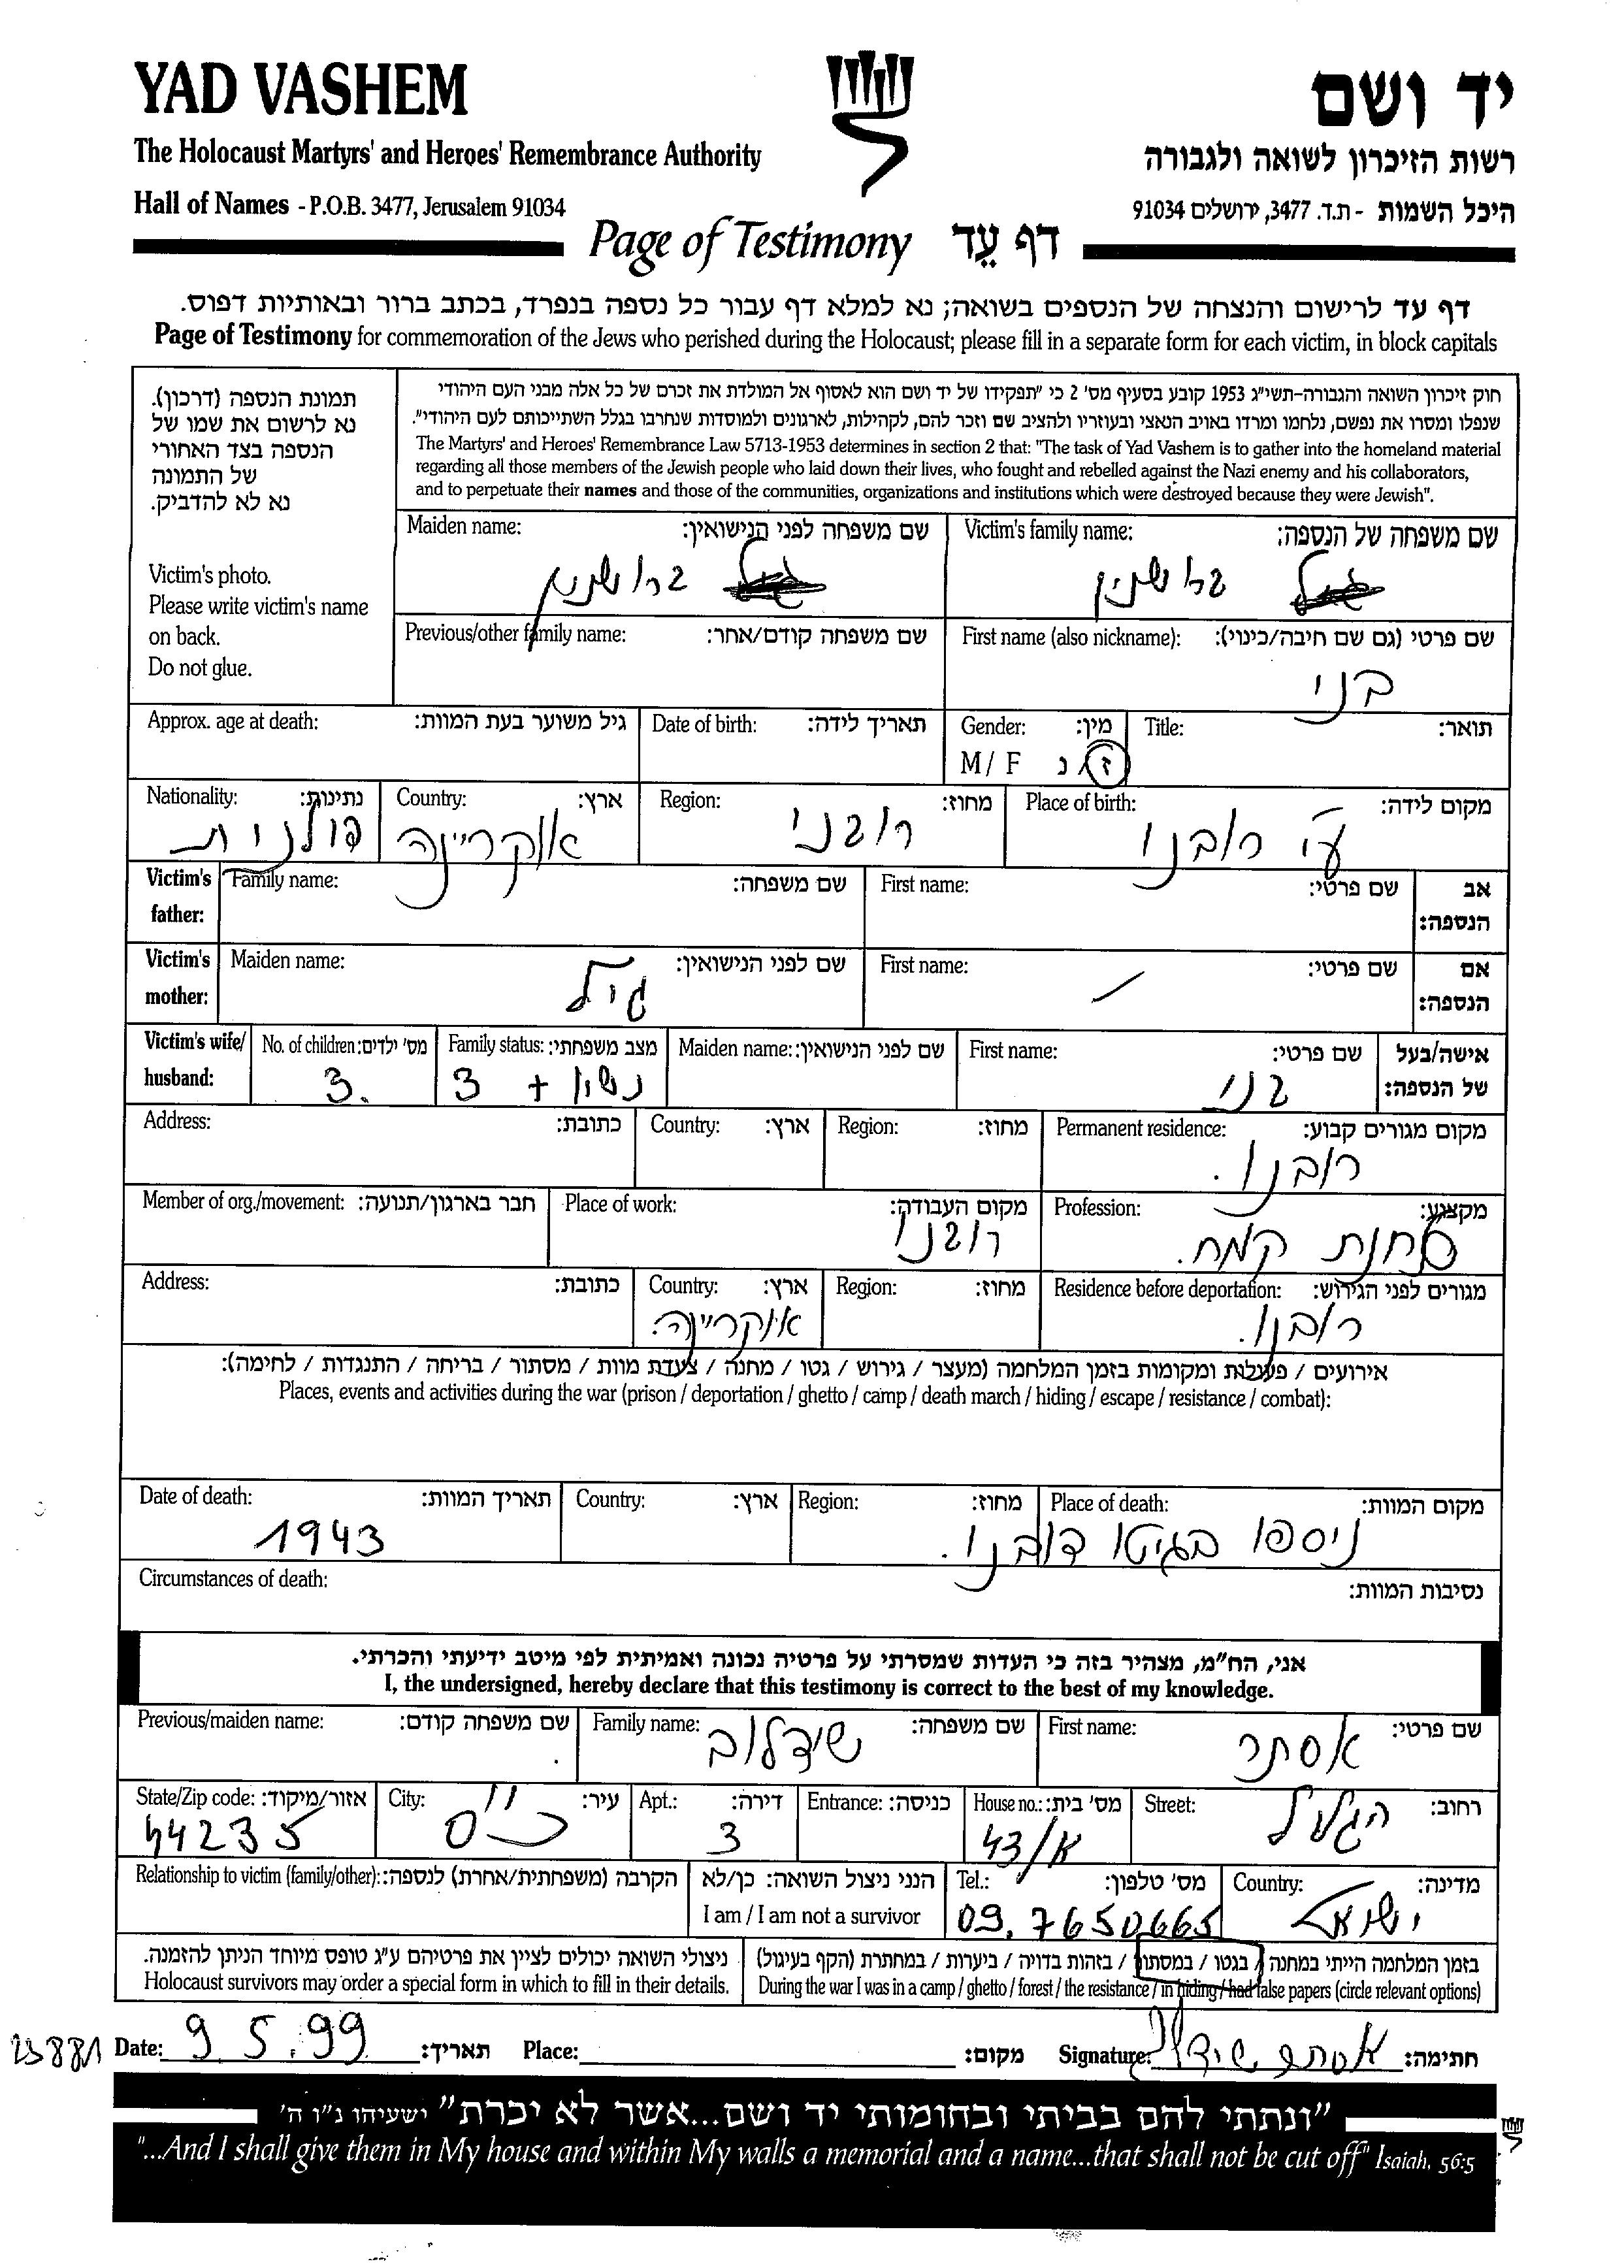 YAD VASHEM
יד ושם
The Holocaust Martyrs' and Heroes' Remembrance Authority
רשות הזיכרון לשואה ולגבורה
Hall of Names - P.O.B. 3477, Jerusalem 91034
היכל השמות - ת.ד. 3477, ירושלים 91034
Page of Testimony דף עֵד
דף עד לרישום והנצחה של הנספים בשואה; נא למלא דף עבור כל נספה בנפרד, בכתב ברור ובאותיות דפוס.
Page of Testimony for commemoration of the Jews who perished during the Holocaust; please fill in a separate form for each victim, in block capitals
תמונת הנספה (דרכון).
נא לרשום את שמו של
הנספה בצד האחורי
של התמונה
נא לא להדביק.
Victim's photo.
Please write victim's name
on back.
Do not glue.
חוק זיכרון השואה והגבורה-תשי"ג 1953 קובע בסעיף מס' 2 כי "תפקידו של יד ושם הוא לאסוף אל המולדת את זכרם של כל אלה מבני העם היהודי
שנפלו ומסרו את נפשם, נלחמו ומרדו באויב הנאצי ובעוזריו ולהציב שם וזכר להם, לקהילות, לארגונים ולמוסדות שנחרבו בגלל השתייכותם לעם היהודי".
The Martyrs' and Heroes' Remembrance Law 5713-1953 determines in section 2 that: "The task of Yad Vashem is to gather into the homeland material
regarding all those members of the Jewish people who laid down their lives, who fought and rebelled against the Nazi enemy and his collaborators,
and to perpetuate their names and those of the communities, organizations and institutions which were destroyed because they were Jewish".
Victim's family name: שם משפחה של הנספה:
ברושנין
Maiden name: שם משפחה לפני הנישואין:
ברושנין
First name (also nickname): שם פרטי (גם שם חיבה/כינוי):
בני
Previous/other family name: שם משפחה קודם/אחר:
Title: תואר:
Gender: מין:
M / F ז/נ
Date of birth: תאריך לידה:
Approx. age at death: גיל משוער בעת המוות:
Place of birth: מקום לידה:
ע"י רובנו
Region: מחוז:
רובני
Country: ארץ:
אוקריינה
Nationality: נתינות:
פולנית
Victim's father: אב הנספה:
First name: שם פרטי:
Family name: שם משפחה:
Victim's mother: אם הנספה:
First name: שם פרטי:
Maiden name: שם לפני הנישואין:
גיל
Victim's wife/ husband: אישה/בעל של הנספה:
First name: שם פרטי:
בני
Maiden name: שם לפני הנישואין:
Family status: מצב משפחתי:
נשוי + 3
No. of children: מס' ילדים:
3.
Permanent residence: מקום מגורים קבוע:
רובנו.
Region: מחוז:
Country: ארץ:
Address: כתובת:
Profession: מקצוע:
טחנת קמח.
Place of work: מקום העבודה:
רובנו
Member of org./movement: חבר בארגון/תנועה:
Residence before deportation: מגורים לפני הגירוש:
רובנו.
Region: מחוז:
Country: ארץ:
אוקריינה.
Address: כתובת:
אירועים / פעולות ומקומות בזמן המלחמה (מעצר / גירוש / גטו / מחנה / צעדת מוות / מסתור / בריחה / התנגדות / לחימה):
Places, events and activities during the war (prison / deportation / ghetto / camp / death march / hiding / escape / resistance / combat):
Place of death: מקום המוות:
ניספו בגיטו דובנו.
Region: מחוז:
Country: ארץ:
Date of death: תאריך המוות:
1943
Circumstances of death: נסיבות המוות:
אני, הח"מ, מצהיר בזה כי העדות שמסרתי על פרטיה נכונה ואמיתית לפי מיטב ידיעתי והכרתי.
I, the undersigned, hereby declare that this testimony is correct to the best of my knowledge.
First name: שם פרטי:
אסתר
Family name: שם משפחה:
שידלוב
Previous/maiden name: שם משפחה קודם:
Street: רחוב:
הגליל
House no.: מס' בית:
43/א
Entrance: כניסה:
Apt.: דירה:
3
City: עיר:
כ"ס
State/Zip code: אזור/מיקוד:
44235
Country: מדינה:
ישראל
Tel.: מס' טלפון:
09.7650665
הנני ניצול השואה: כן/לא
I am / I am not a survivor
Relationship to victim (family/other): הקרבה (משפחתית/אחרת) לנספה:
בזמן המלחמה הייתי במחנה / בגטו / במסתור / בזהות בדויה / ביערות / במחתרת (הקף בעיגול)
During the war I was in a camp / ghetto / forest / the resistance / in hiding / had false papers (circle relevant options)
ניצולי השואה יכולים לציין את פרטיהם ע"ג טופס מיוחד הניתן להזמנה.
Holocaust survivors may order a special form in which to fill in their details.
Date: 9.5.99 תאריך: Place: מקום: Signature: אסתר שידלוב חתימה:
"ונתתי להם בביתי ובחומותי יד ושם...אשר לא יכרת" ישעיהו נ"ו ה'
"...And I shall give them in My house and within My walls a memorial and a name...that shall not be cut off" Isaiah, 56:5